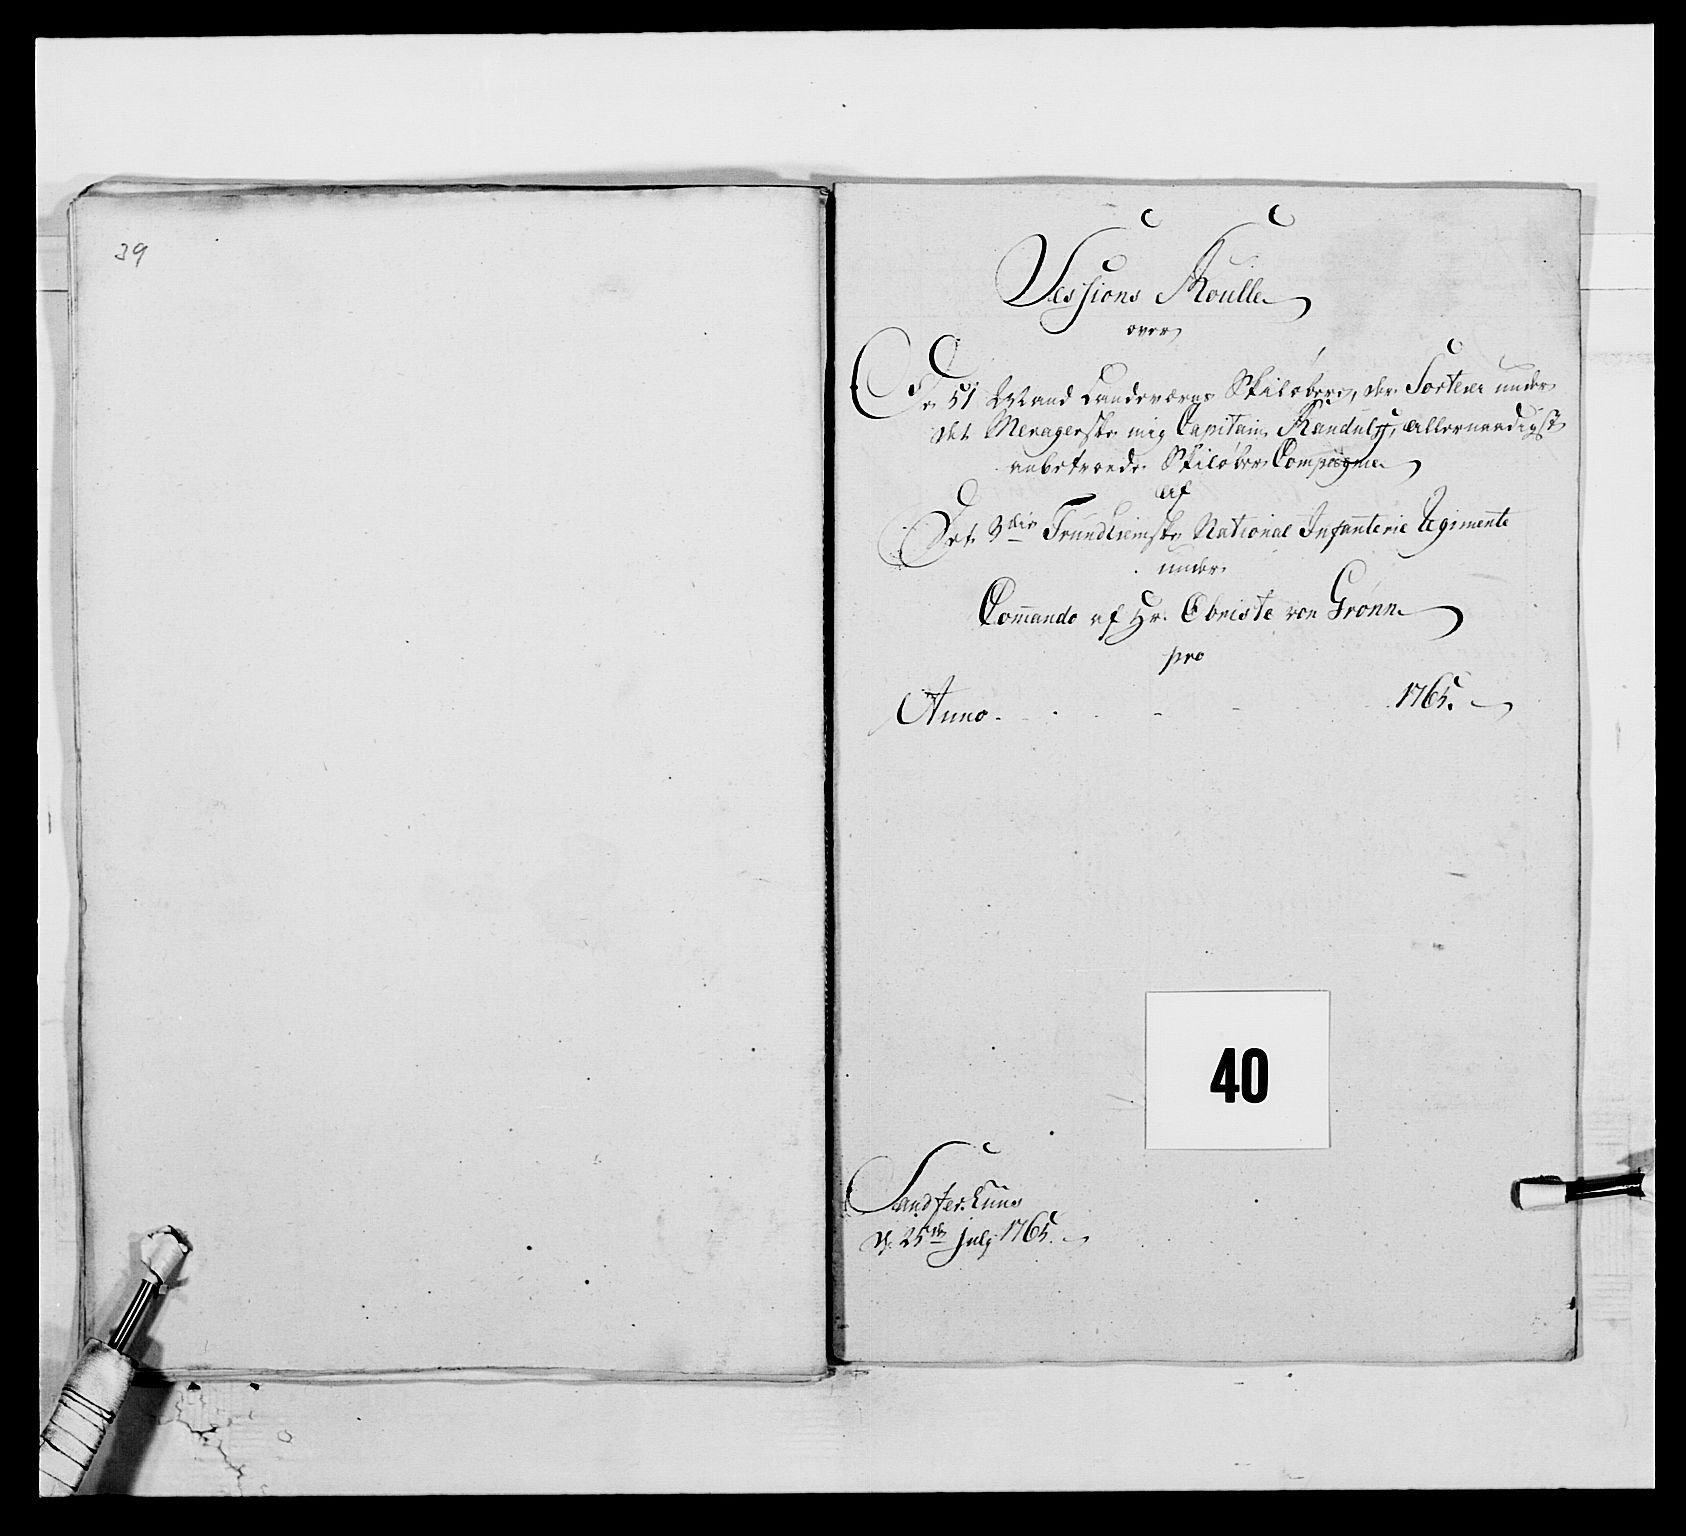 39
Sessions Roulle
over
De 51 Mand Landeværns Skiløbere, der Sorterer under
det Meragerske mig Capitain Randulff, allernaadigst
anbetroede Skiløber Compagnie
af
Det 3die Trundhiemske National Infanterie Regimente
under
Commando af Hr. Obriste von Grønn
pro
Anno - - - - 1765.
40
d. 25de july 1765.